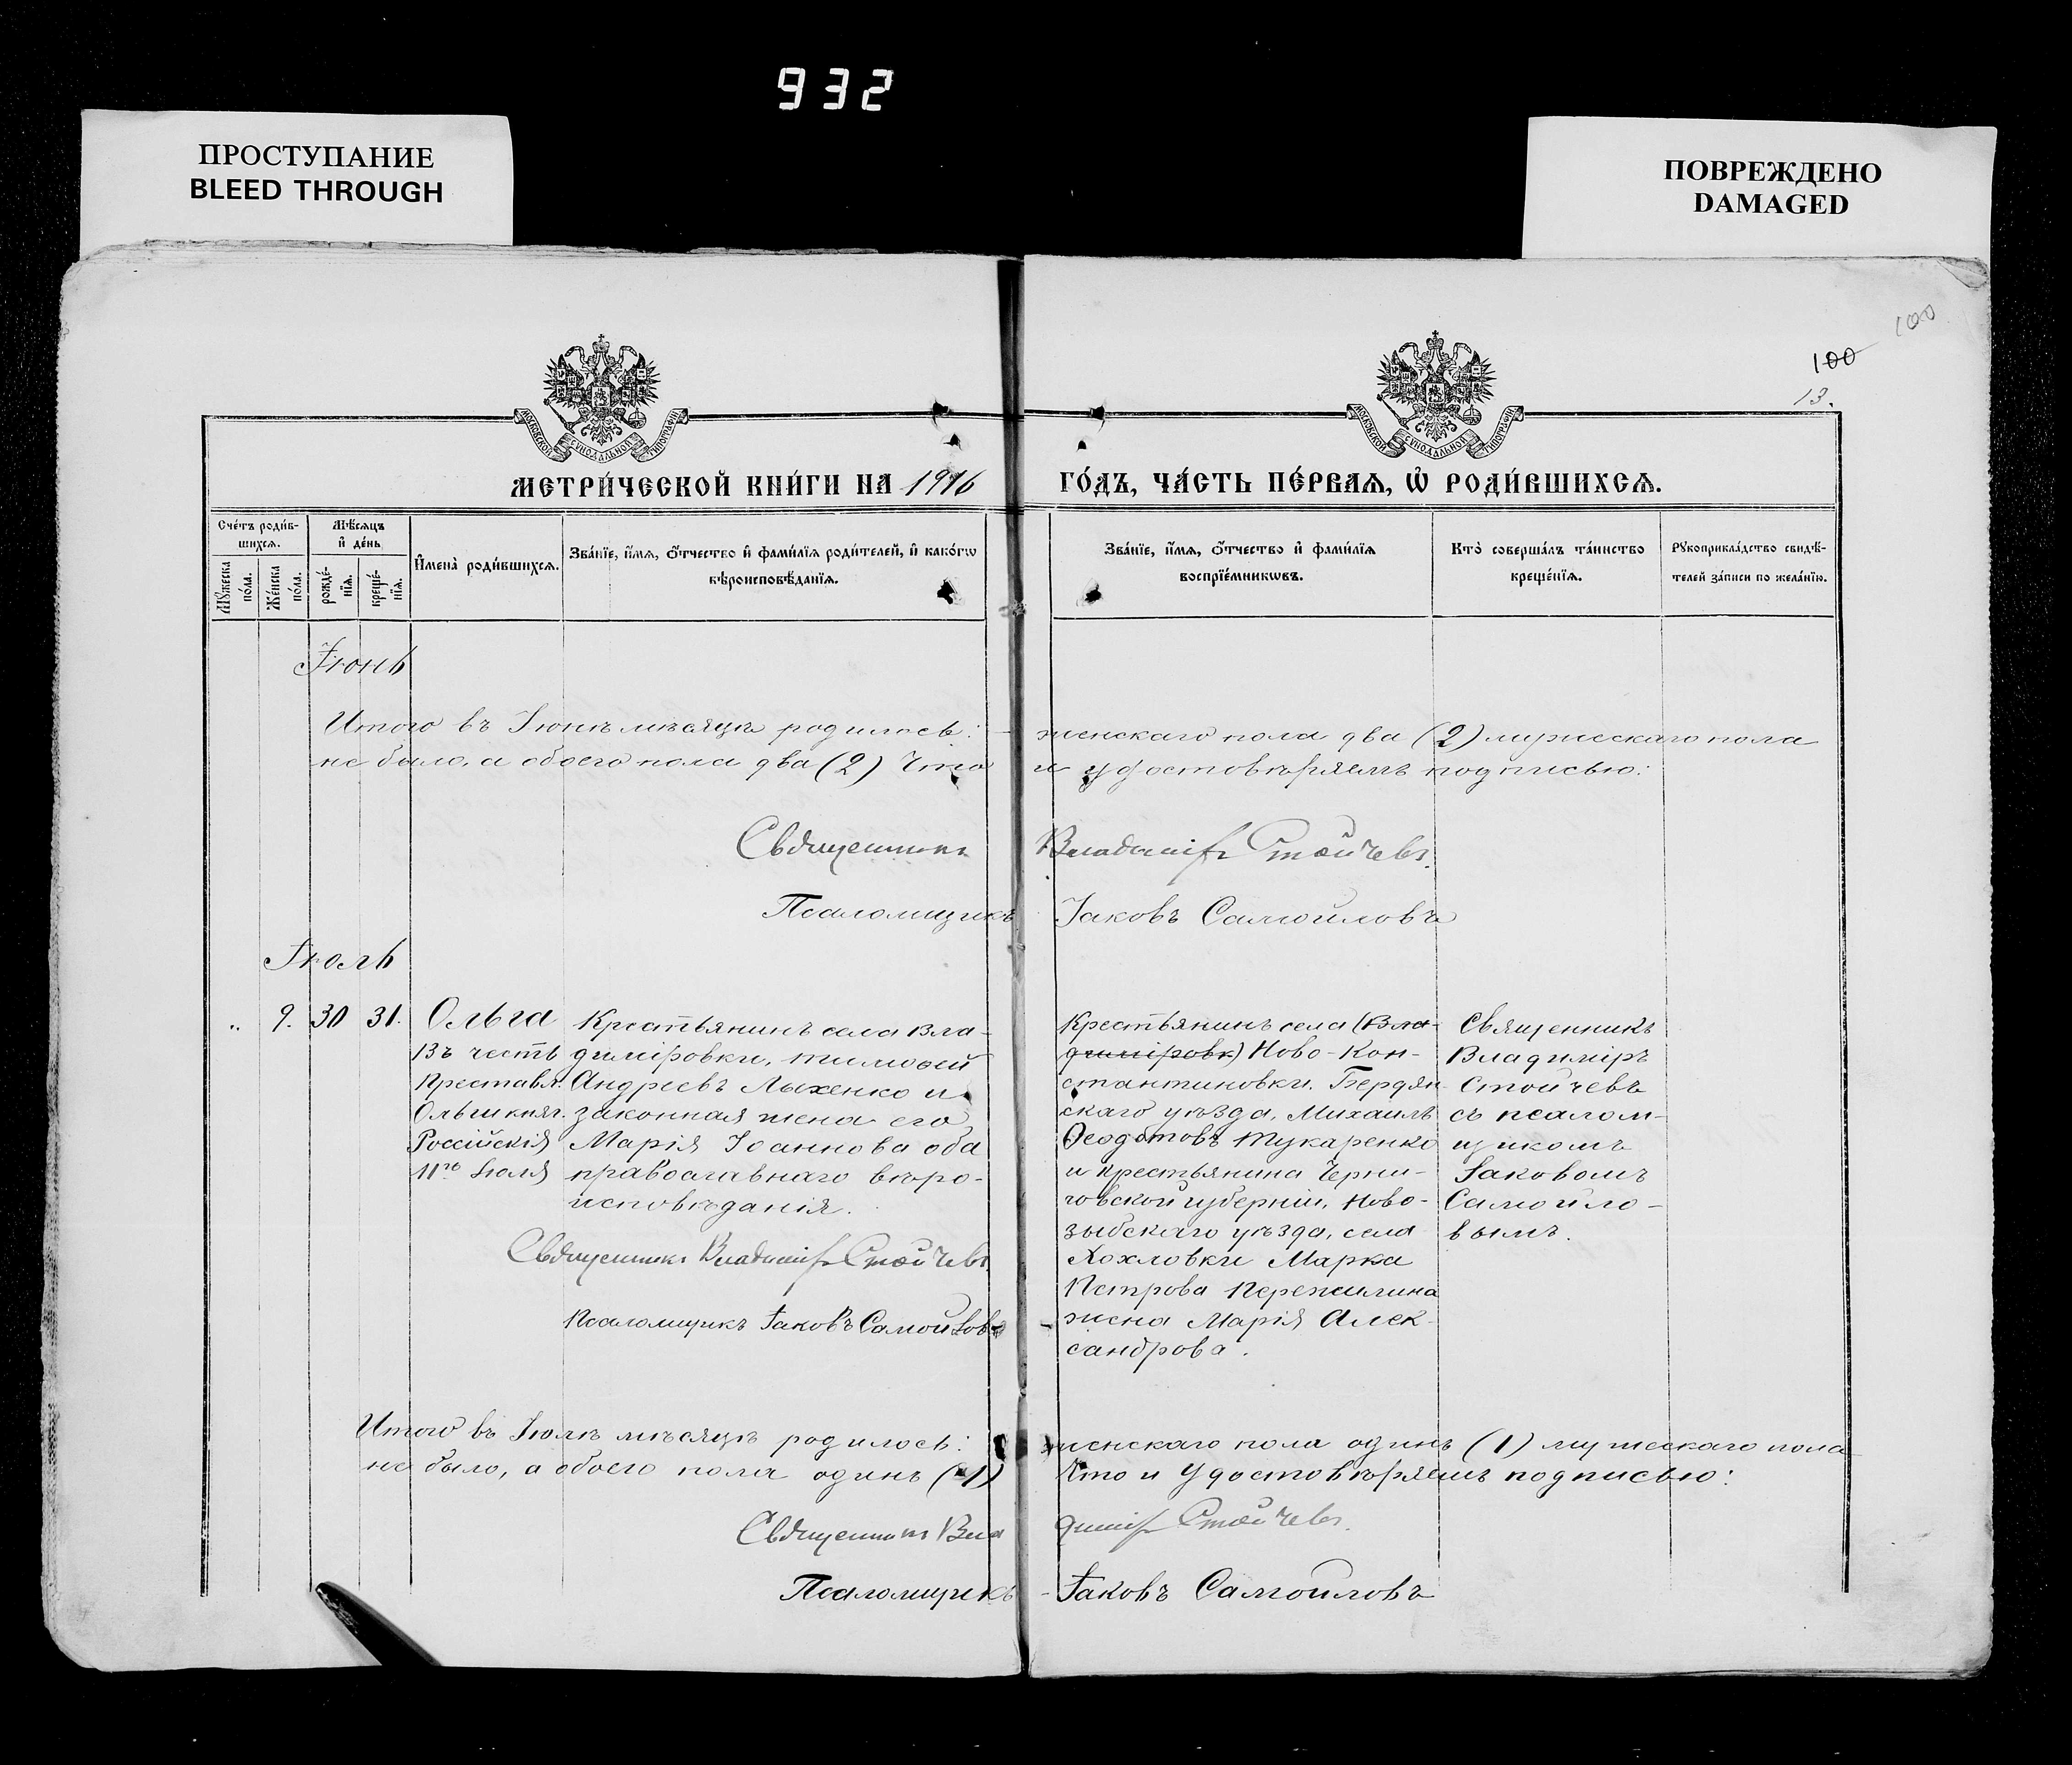 932
ПРОСТУПАНИЕ
BLEED THROUGH
ПОВРЕЖДЕНО
DAMAGED
100
100
13.
МОСКОВСКОЙ СѴНОДАЛЬНОЙ ТИПОГРАФІИ
МОСКОВСКОЙ СѴНОДАЛЬНОЙ ТИПОГРАФІИ
МЕТРИ́ЧЕСКОЙ КНИ́ГИ НА 1916 ГО́ДЪ, ЧА́СТЬ ПЕ́РВАѦ, Ѡ҆ РОДИ́ВШИХСѦ.
Сче́тъ роди́в-
шихсѧ.
Мѣ́сѧцъ
и҆ де́нь
Мꙋ́жеска
по́ла.
Же́нска
по́ла.
рожде́-
нїѧ.
креще́-
нїѧ.
И҆мена̀ роди́вшихсѧ.
Зва́нїе, и҆́мѧ, ѻ҆́тчество и҆ фами́лїѧ роди́телей, и҆ како́гѡ
вѣроисповѣ́данїѧ.
Зва́нїе, и҆́мѧ, ѻ҆́тчество и҆ фами́лїѧ
воспрїе́мникѡвъ.
Кто̀ соверша́лъ та́инство
креще́нїѧ.
Рꙋкоприкла́дство свидѣ́-
телей за́писи по жела́нїю.
Іюнь
Итого въ Іюнѣ мѣсяцѣ родилось: женскаго пола два (2) мужескаго пола
не было, а обоего пола два (2) Что и удостовѣряемъ подписью:
Священникъ Владиміръ Стойчевъ.
Псаломщикъ Іаковъ Самойловъ
Іюль
„ 9. 30 31.
Ольга
Въ честь
преставл.
Ольги княг.
Россійскія
11го Іюля
Крестьянинъ села Вла-
диміровки, Тимоѳей
Андреевъ Лыхенко и
законная жена его
Марія Іоаннова оба
православнаго вѣро-
исповѣданія.
Священникъ Владиміръ Стойчевъ.
Псаломщикъ Іаковъ Самойловъ
Крестьянинъ села (Вла-
диміровк) Ново-Кон-
стантиновки, Бердян-
скаго уѣзда, Михаилъ
Ѳеодотовъ Тукаренко
и крестьянина Черни-
говской губерніи, Ново-
зыбскаго уѣзда, села
Хохловки Марка
Петрова Пережилина
жена Марія Алек-
сандрова.
Священникъ
Владиміръ
Стойчевъ
съ псалом-
щикомъ
Іаковомъ
Самойло-
вымъ.
Итого въ Іюлѣ мѣсяцѣ родилось: женскаго пола одинъ (1) мужескаго пола
не было, а обоего пола одинъ (1) Что и удостовѣряемъ подписью:
Священникъ Владиміръ Стойчевъ.
Псаломщикъ Іаковъ Самойловъ